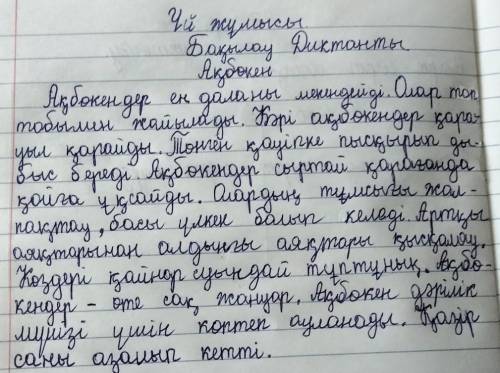 Үй жұмысы
Бақылау Диктанты
Ақбөкен
Ақбөкендер ең даланы мекендейді. Олар топ
тобымен жайылады. Кәрі ақбөкендер қара-
уыл қарайды. Төнген қауіпке пысқырып ды-
быс береді. Ақбөкендер сырттай қарағанда
қойға ұқсайды. Олардың тұмсығы жал-
пақтау, басы үлкен болып келеді. Артқы
аяқтарынан алдыңғы аяқтары қысқалау.
Көздері қайнар суындай тұптұнық. Ақбө-
кендер - өте сақ жануар. Ақбөкен дәрілік
мүйізі үшін көптеп ауланады. Қазір
саны азайып кетті.